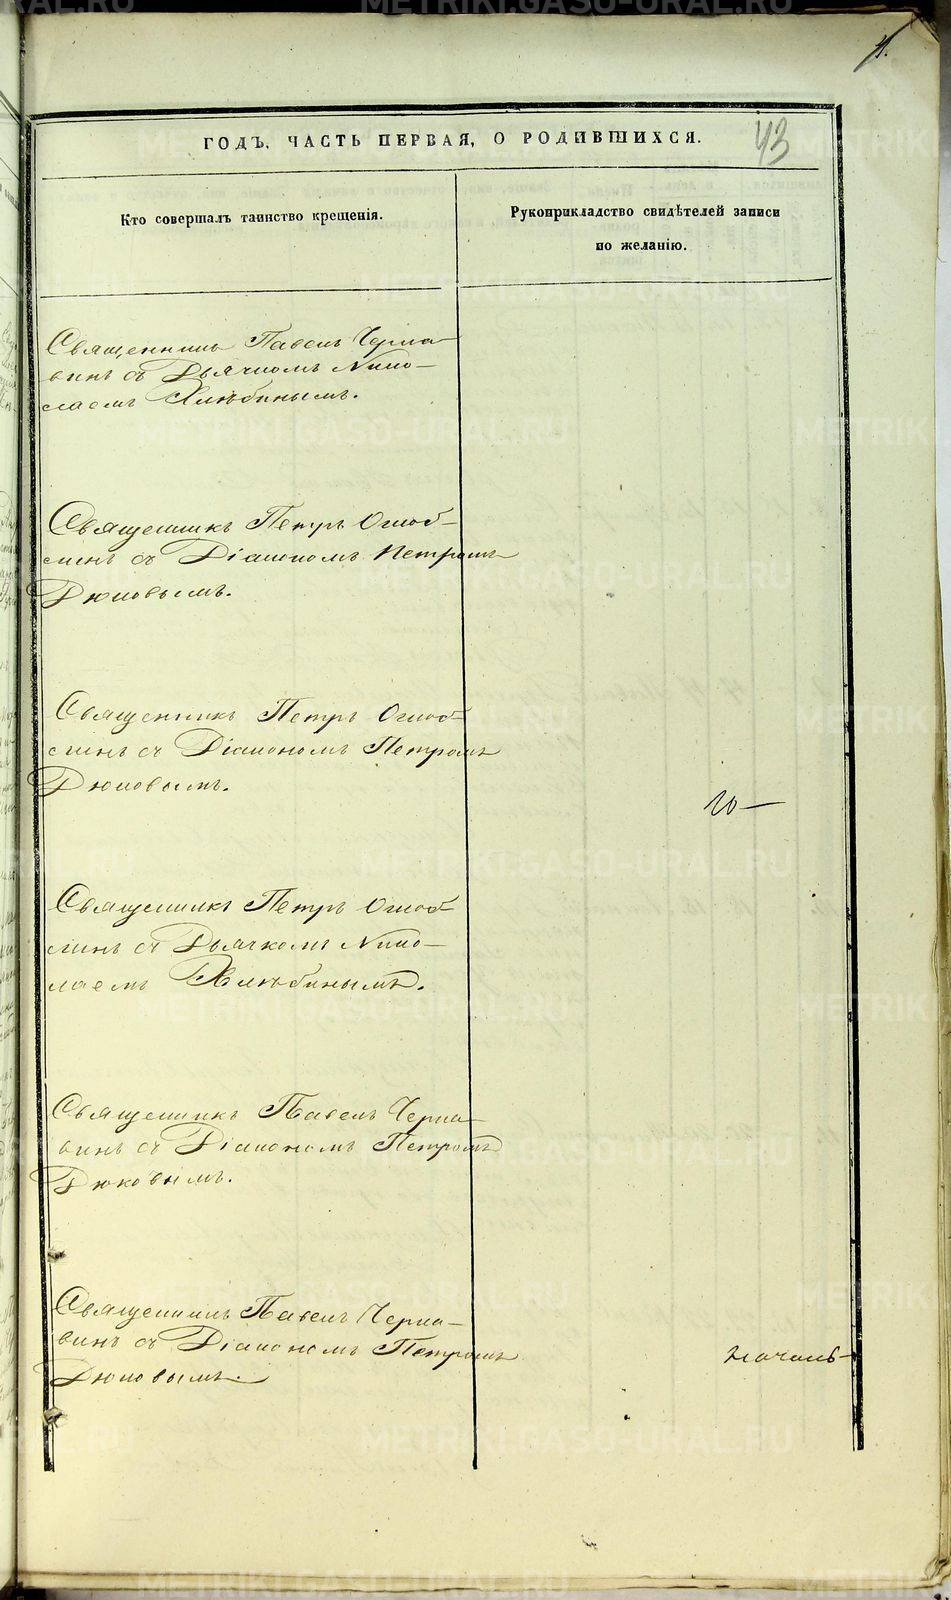 4.
43
ГОДЪ, ЧАСТЬ ПЕРВАЯ, О РОДИВШИХСЯ.
Кто совершалъ таинство крещенія.
Рукоприкладство свидѣтелей записи
по желанію.
Священникъ Павелъ Черна-
винъ съ Дьячкомъ Нико-
лаемъ Хлѣбинымъ.
Священникъ Петръ Оглоб-
линъ съ Діакономъ Петромъ
Дюковымъ.
Священникъ Петръ Оглоб-
линъ съ Діакономъ Петромъ
Дюковымъ.
Священникъ Петръ Оглоб-
линъ съ Дьячкомъ Нико-
лаемъ Хлѣбинымъ.
Священникъ Павелъ Черна-
винъ съ Діакономъ Петромъ
Дюковымъ.
Священникъ Павелъ Черна-
винъ съ Діакономъ Петромъ
Дюковымъ.
METRIKI.GASO-URAL.RU